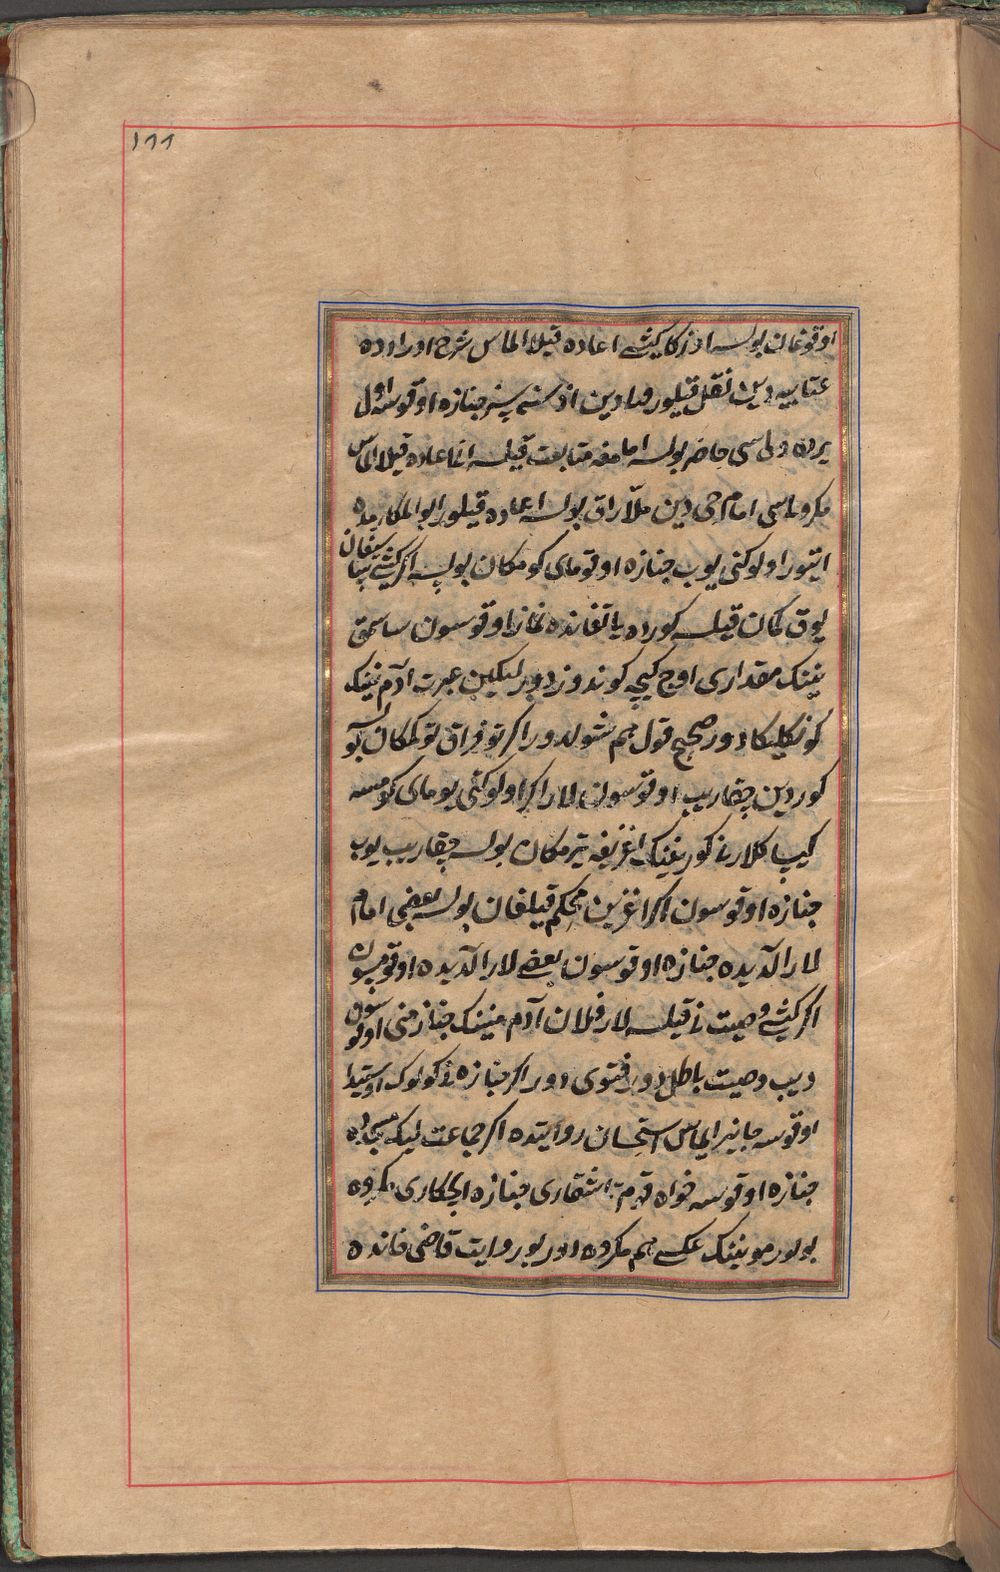 ١٦٦
اوقوغان بولسه اوزكا كیشی اعاده قیلا الماس شرح اوراده
عتابیه دین نقل قیلور فتادین اذنسیز جنازه اوقوسه اول
یرده ولی سی حاضر بولسه امامغه متابعت قیلسه انا اعاده قیلا الماس
مكر ولی سی امام حی دین ملّاراق بولسه اعاده قیلور ابوالمكارمده
ایتور اولوكنی یوب جنازه اوقومای كومكان بولسه اكر كیشی یبیلغان
یوق كمان قیلسه كورده یاتقانده نماز اوقوسون ساسیمق
نینك مقداری اوچ كیچه كوندوزدور لیكین عبرت آدم نینك
كونكلیكا دور صحیح قول هم شولدور اكر توفراق توكمكان بولسه
كوردین چقاریب اوقوسون لار اكر اولوكنی یومای كومسه
كیپاكلارنی كورنینك اغزیغه تیرمكان بولسه چقاریب یوب
جنازه اوقوسون اكر اغزین محكم قیلغان بولسه بعضی امام
لار الدیده جنازه اوقوسون بعضی لار الدیده اوقومسون
اكر كیشی وصیت نی قیلسه لار فلان آدم مینینك جنازمنی اوقوسون
دیب وصیت باطل دور فتوی دور اكر جنازه نی كولوك اوستیدا
اوقوسه جایز ایماس استحسان روایتده اكر جماعت لیك مسجدده
جنازه اوقوسه خواه قوم تاشقاری جنازه ایچكاری مكروه
بولور مونینك عكسی هم مكروه دور بو روایت قاضی خانده